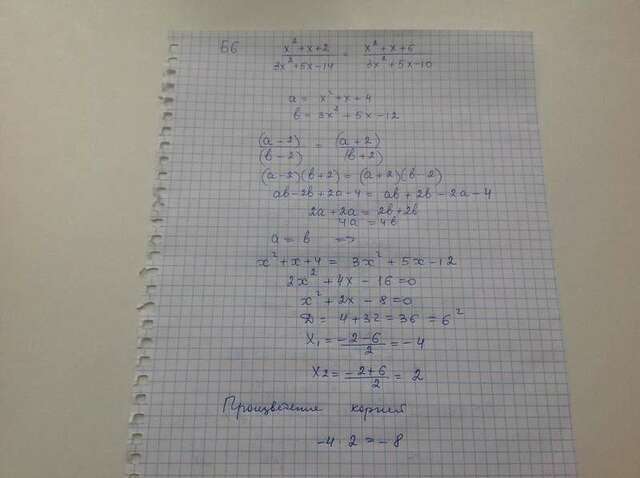 Б6 x²+x+2 / 3x²+5x-14 = x²+x+6 / 3x²+5x-10
a = x²+x+4
b = 3x²+5x-12
(a-2) / (b-2) = (a+2) / (b+2)
(a-2)(b+2) = (a+2)(b-2)
ab-2b+2a-4 = ab+2b-2a-4
2a+2a = 2b+2b
4a = 4b
a = b =>
x²+x+4 = 3x²+5x-12
2x²+4x-16=0
x²+2x-8=0
D = 4+32=36 = 6²
x₁ = -2-6 / 2 = -4
x₂ = -2+6 / 2 = 2
Произведение корней
-4·2=-8